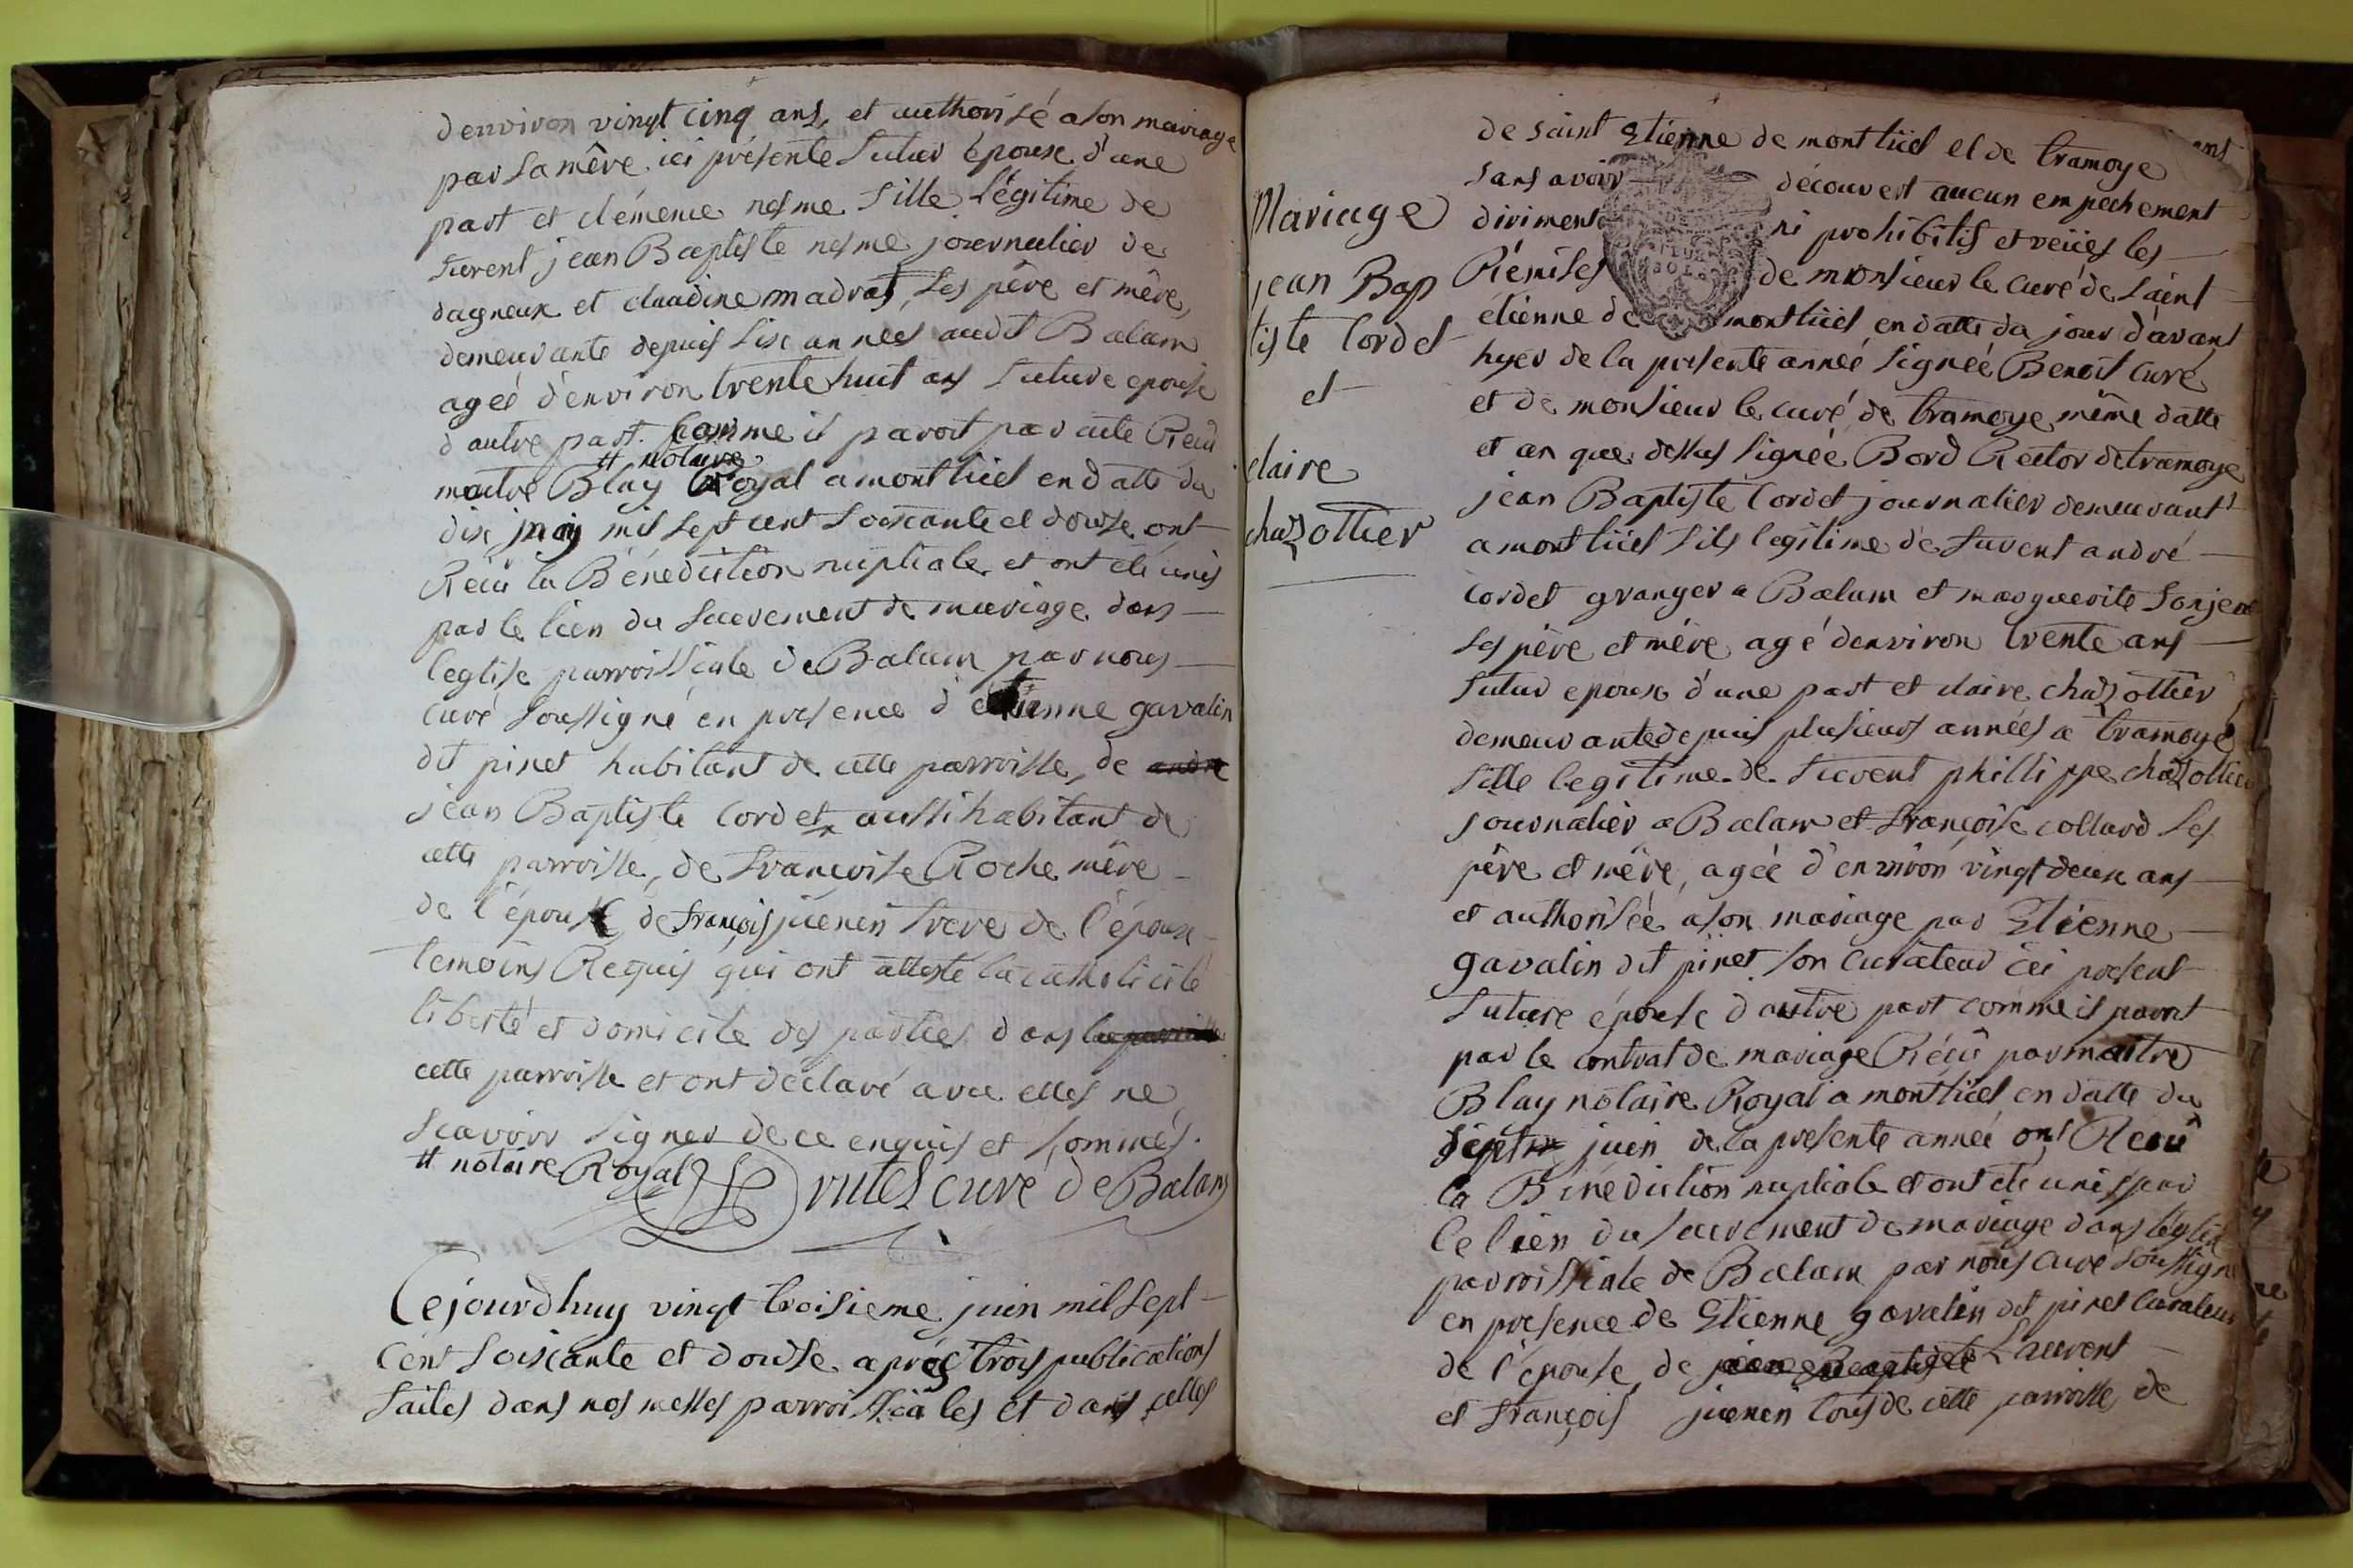 d'environ vingt cinq ans, et authorisé a son mariage
par sa mêre ici présente futur époux d'une
part et clémence nesme fille légitime de
furent jean Baptiste nesme journalier de
dagneux et claudine madras, ses pêre et mêre,
demeurante depuis six années audit Balan
agéé d'environ trente huit ans future epouse
d'autre part. comme il paroit par acte Recû
# notaire
maitre Blay Royal a montluel en datte du
dix may mil sept cent soixante et douse ont
Récû la Bénédiction nuptiale et ont été unis
par le lien du sacrement de mariage dans
leglise parroissiale de Balan par nous
curé soussigné en presence d'etienne gavalin
dit pinet habitant de cette parroisse, de andre
jean Baptiste Cordet aussi habitant de
cette parroisse, de françoise Roche mêre
de l'époux de françois juenin frere de l'époux
temoins Requis qui ont attesté la catholicité
liberté et domicile des parties dans la parroisse
cette parroisse et ont déclaré avec elles ne
scavoir signer de ce enquis et sommés.
# notaire Royal curé de Balan
Cejourdhuy vingt troisieme juin mil sept
cent soixante et douse après trois publications
faites dans nos messes parroissiales et dans celles
Mariage
jean Bap
tiste Cordet
et
claire
chazottier
de saint Etienne de montluel et de tramoye
sans avoir découvert aucun empechement
diriment ni prohibitif et veües les
Rémises de monsieur le curé de saint
étienne de montluel en datte du jour d'avant
hyer de la presente annéé signéé Benoit curé
et de monsieur le curé de tramoye même datte
et an que dessus signéé Bord Rector de tramoye
jean Baptiste Cordet journalier demeurant
a montluel fils legitime de furent andré
cordet granger a Balan et marguerite
ses pêre et mêre agé denviron trente ans
futur epoux d'une part et claire chazottier
demeurante depuis plusieurs années a tramoye
fille legitime de furent phillippe chazottier
journalier a Balan et françoise collard ses
pêre et mêre, agéé d'environ vingt deux ans
et authoriséé a son mariage par Etienne
gavalin dit pinet son curateur ici present
future épouse d'autre part comme il paroit
par le contrat de mariage Récû par maitre
Blay notaire Royal a montluel en datte du
sept juin de la presente année ont Recû
la Bénédiction nuptiale et ont été unis par
le lien du sacrement de mariage dans léglise
parroissiale de Balan par nous curé soussigné
en presence de Etienne gavalin dit pinet curateur
de l'épouse, de jean Baptiste Laurent
et françois juenin tous de cette parroisse, de